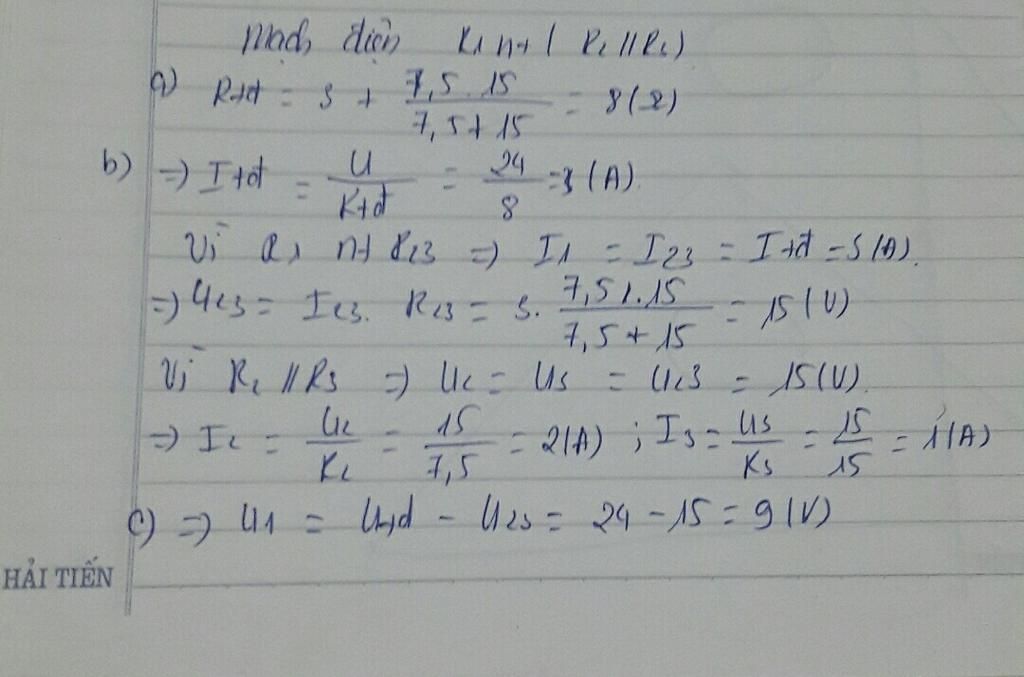 Mạch điện R1 nt ( R2 // R3)
a) Rtđ = 3 + 7,5 . 15 / 7,5 + 15 = 8 (Ω)
b) => Itđ = U / Rtđ = 24 / 8 = 3 (A).
Vì R1 nt R23 => I1 = I23 = Itđ = 3 (A).
=> U23 = I23 . R23 = 3. 7,5 . 15 / 7,5 + 15 = 15 (V)
Vì R2 // R3 => U2 = U3 = U23 = 15 (V).
=> I2 = U2 / R2 = 15 / 7,5 = 2 (A) ; I3 = U3 / R3 = 15 / 15 = 1 (A)
c) => U1 = Utđ - U23 = 24 - 15 = 9 (V)
HẢI TIẾN